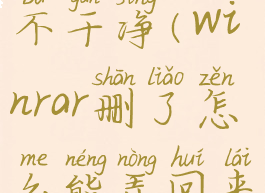 不干净(wi
shān liǎo zěn
nrar删了怎
me néng nòng huí lái
么能弄回来